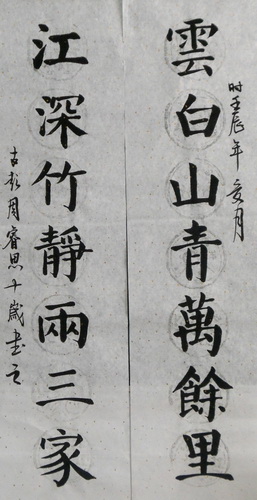 雲白山青萬餘里
時壬辰年亥月
江深竹靜兩三家
古彭周睿思十歲書之